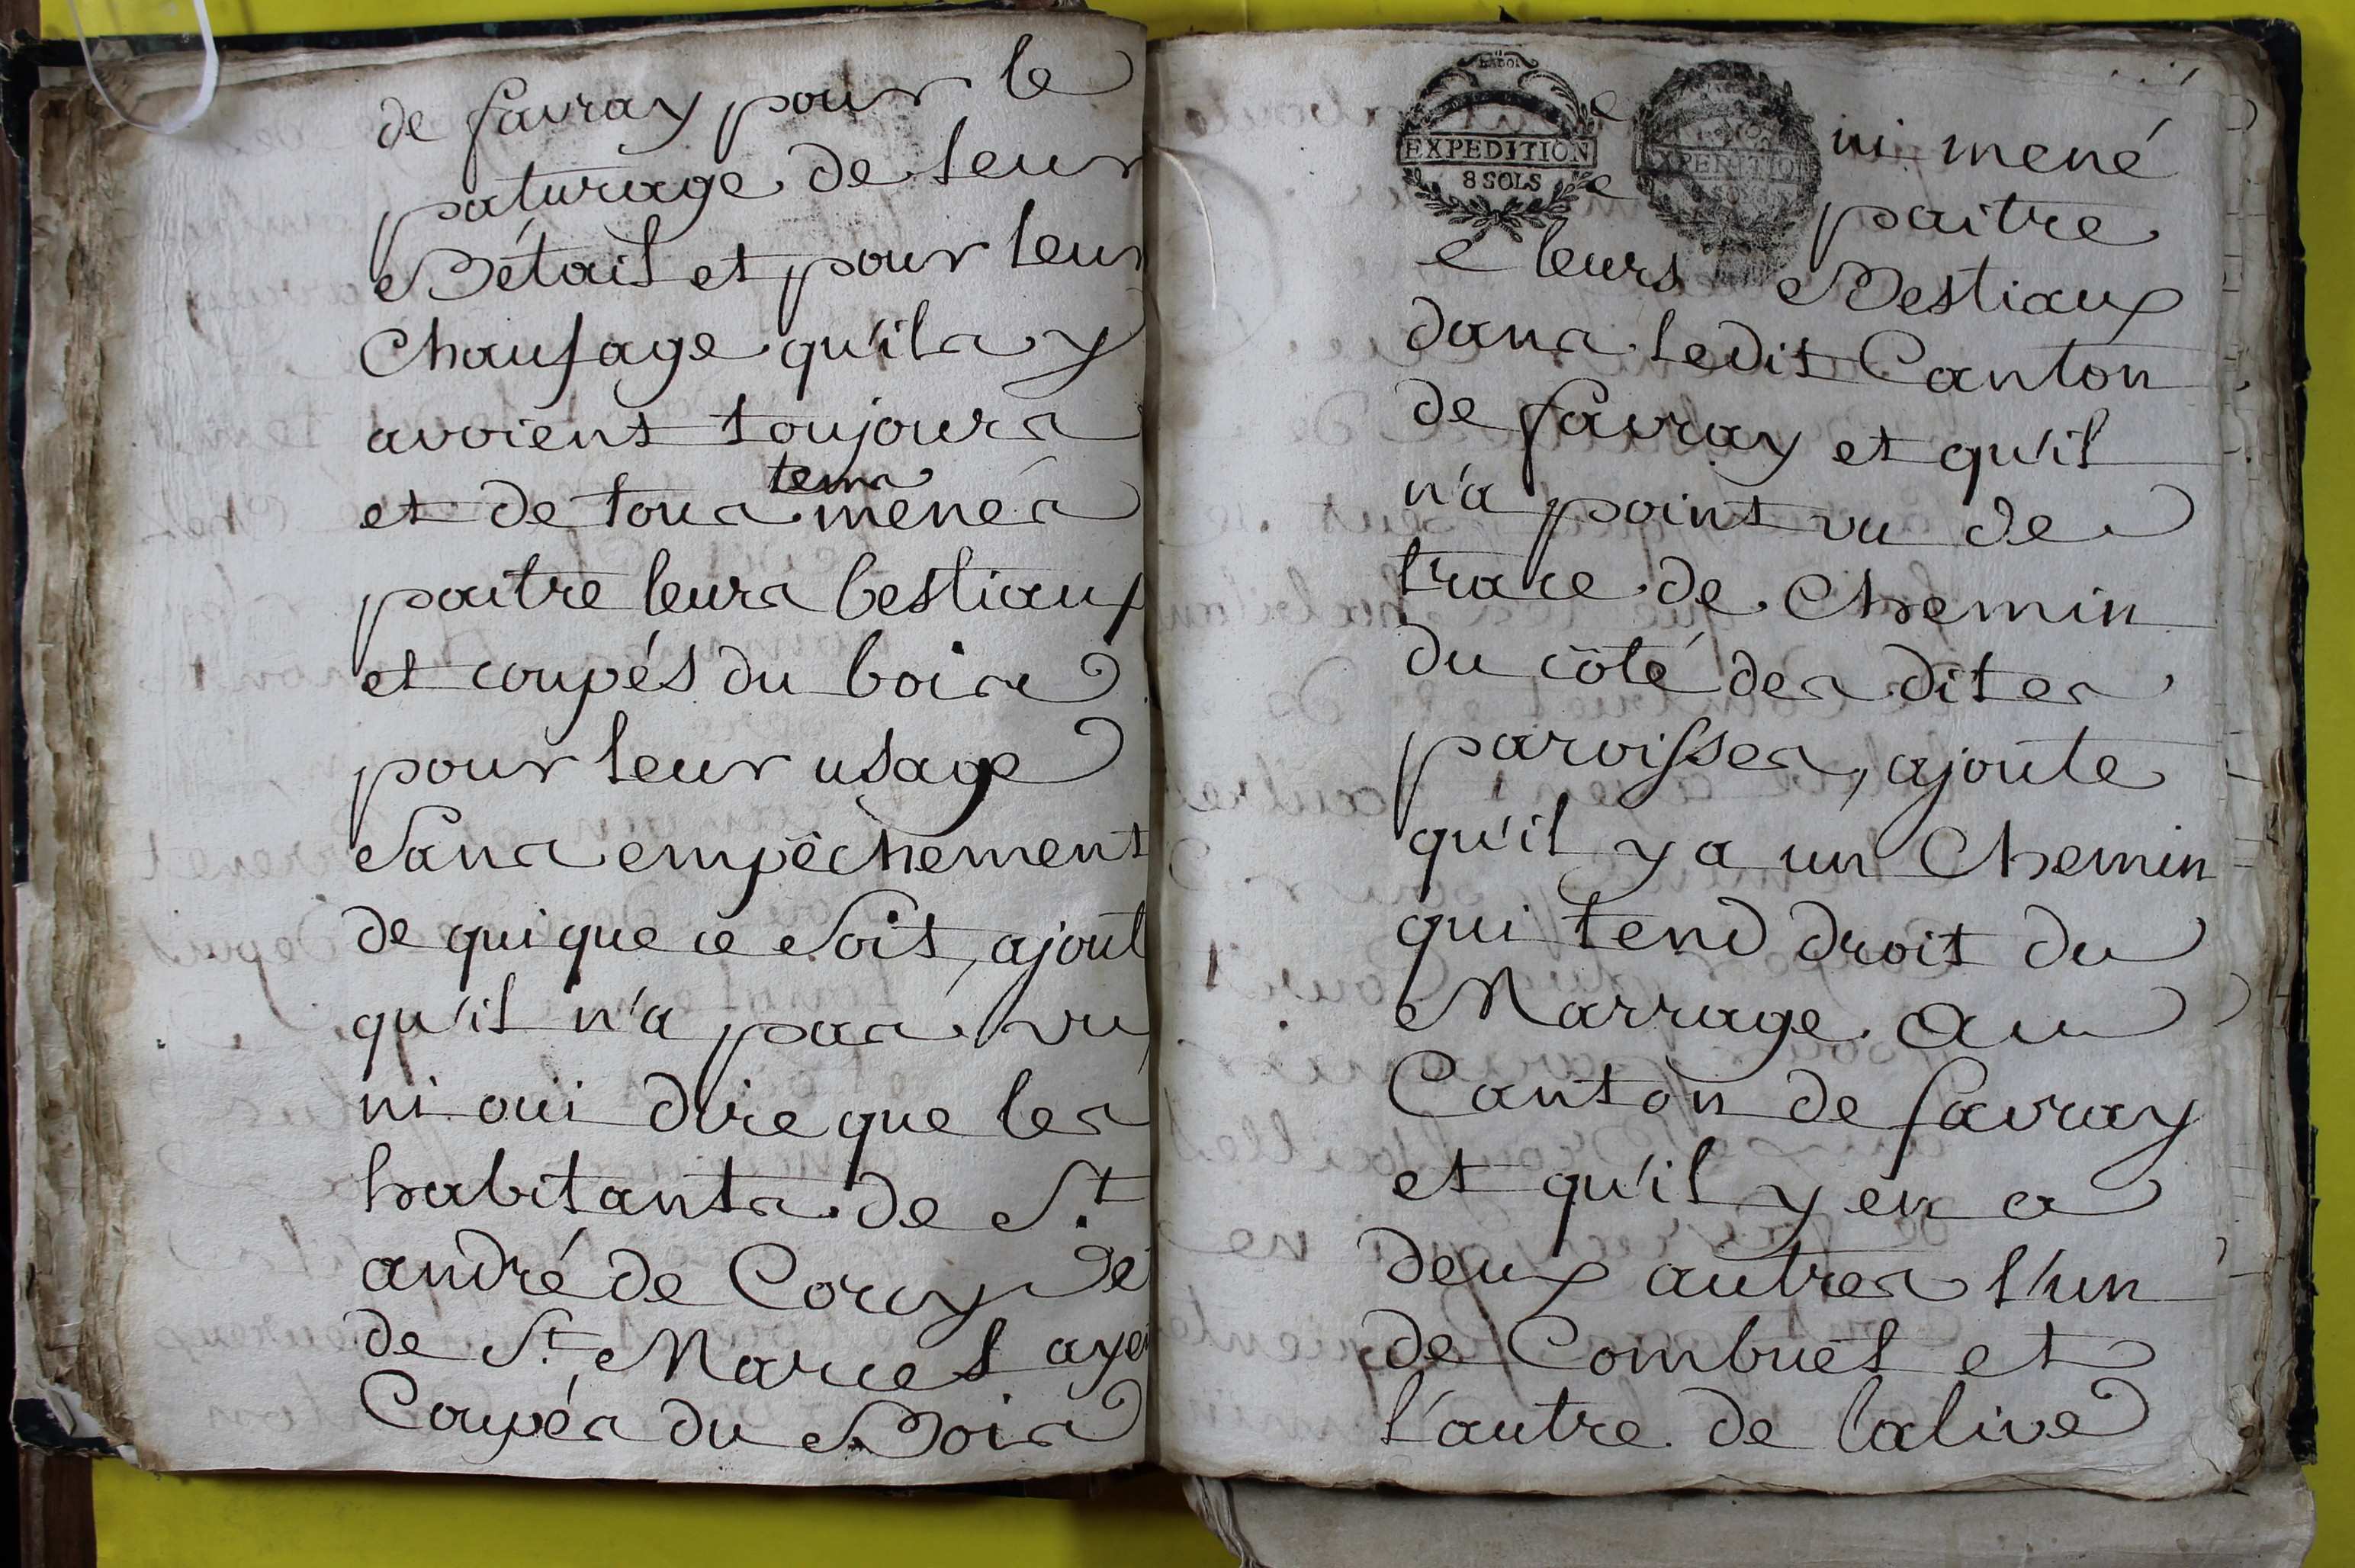 de favray pour le
paturage de leur
Bétail et pour leur
Chaufage qu'ils y
avoient toujours
tems
et de tous menés
paitre leurs bestiaux
et coupés du bois
pour leur usage
Sans empêchement
de qui que ce Soit, ajout
qu'il n'a pas vu
ni oui dire que les
habitants de St.
andré de Corcy et
de St. Marcel aye
Coupés du Bois
EXPEDITION
8 SOLS
EXPEDITION
ni mené
paitre
leurs Bestiaux
dans ledit Canton
de favray et qu'il
n'a point vu de
trace de Chemin
du côté des dites
paroisses, ajoute
qu'il y a un Chemin
qui tend droit du
Marrage au
Canton de favray
et qu'il y en a
deux autres l'un
de Combuet et
l'autre de lalive